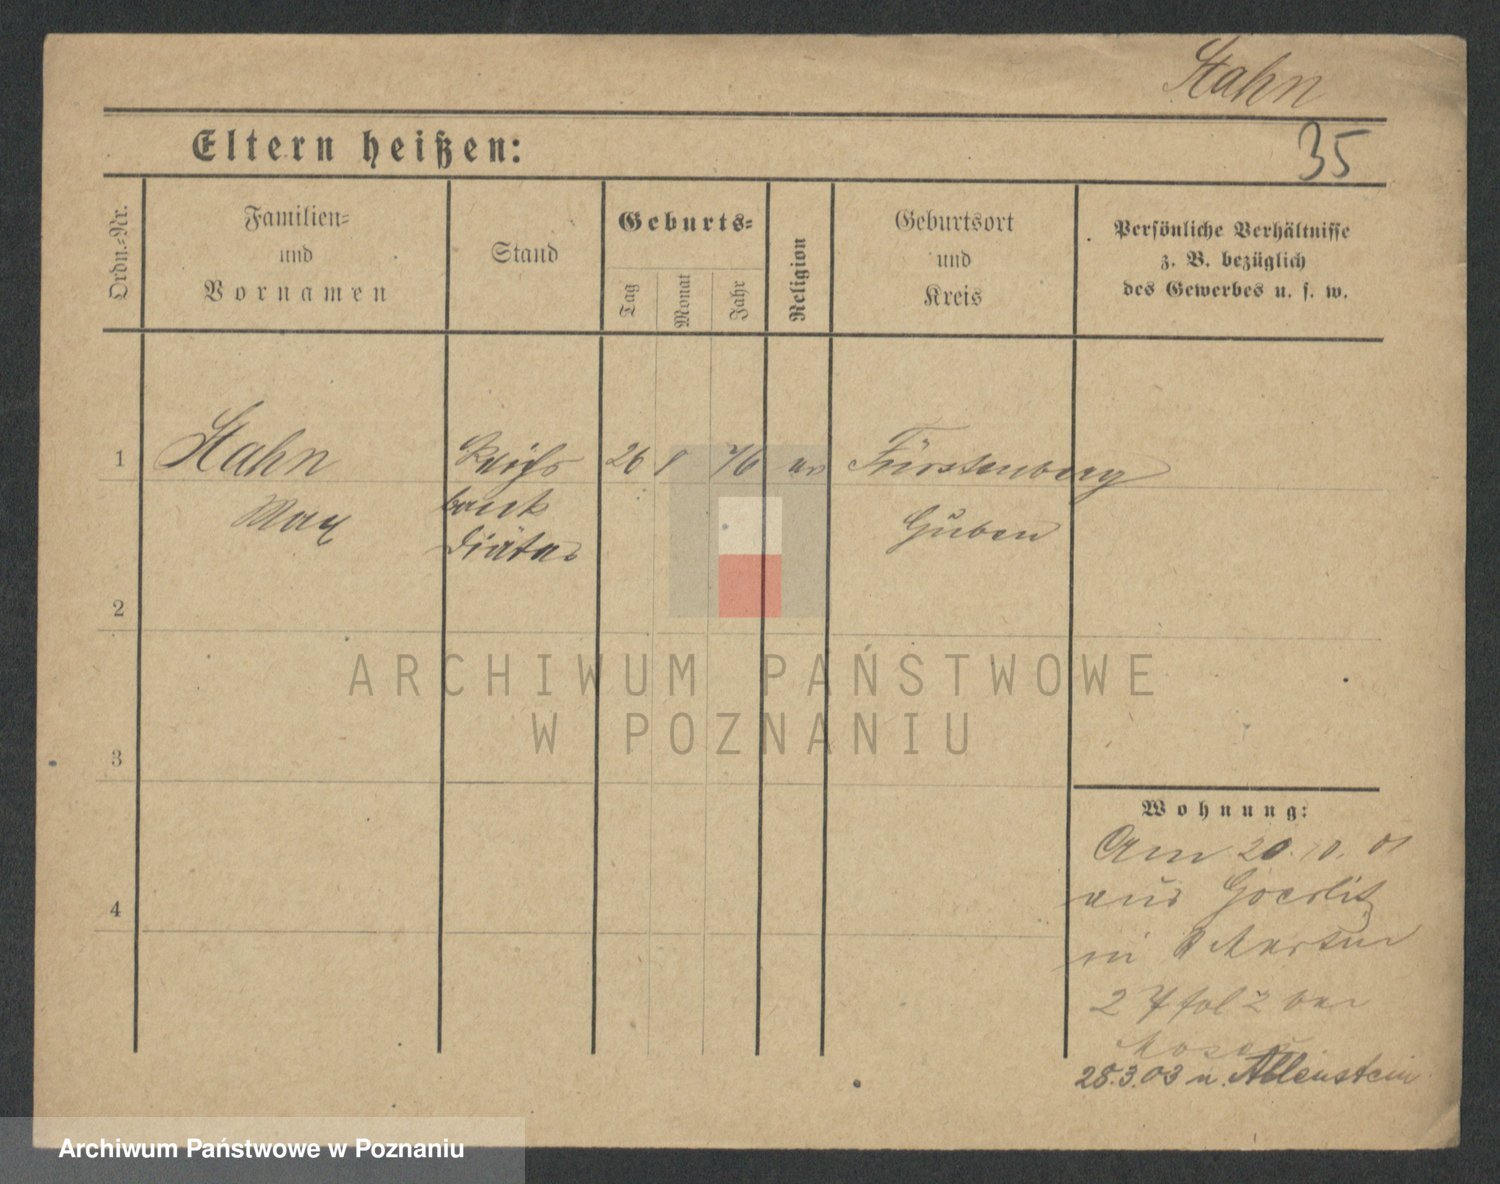 Hahn
35
Eltern heißen:
Ordn.-Nr.
Familien-
und
Vornamen
Stand
Geburts-
Tag
Monat
Jahr
Religion
Geburtsort
und
Kreis
Persönliche Verhältnisse
z. B. bezüglich
des Gewerbes u. s. w.
1
Hahn
Reichs
26
76
ev
Fürstenberg
Max
bank
Guben
Diätar
2
ARCHIWUM PAŃSTWOWE
W POZNANIU
3
Wohnung:
Am 20.10.01
aus Goerlitz
in Martin
2
4
28.3.03 n. Allenstein
Archiwum Państwowe w Poznaniu